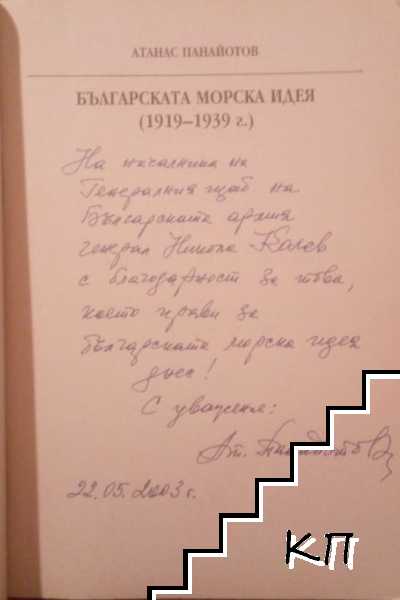 АТАНАС ПАНАЙОТОВ
БЪЛГАРСКАТА МОРСКА ИДЕЯ
(1919–1939 г.)
На началника на
Генералния щаб на
Българската армия
генерал Никола Колев
с благодарност за това,
което прави за
българската морска идея
днес!
С уважение:
Ат. Панайотов
22.05.2003 г.
КП